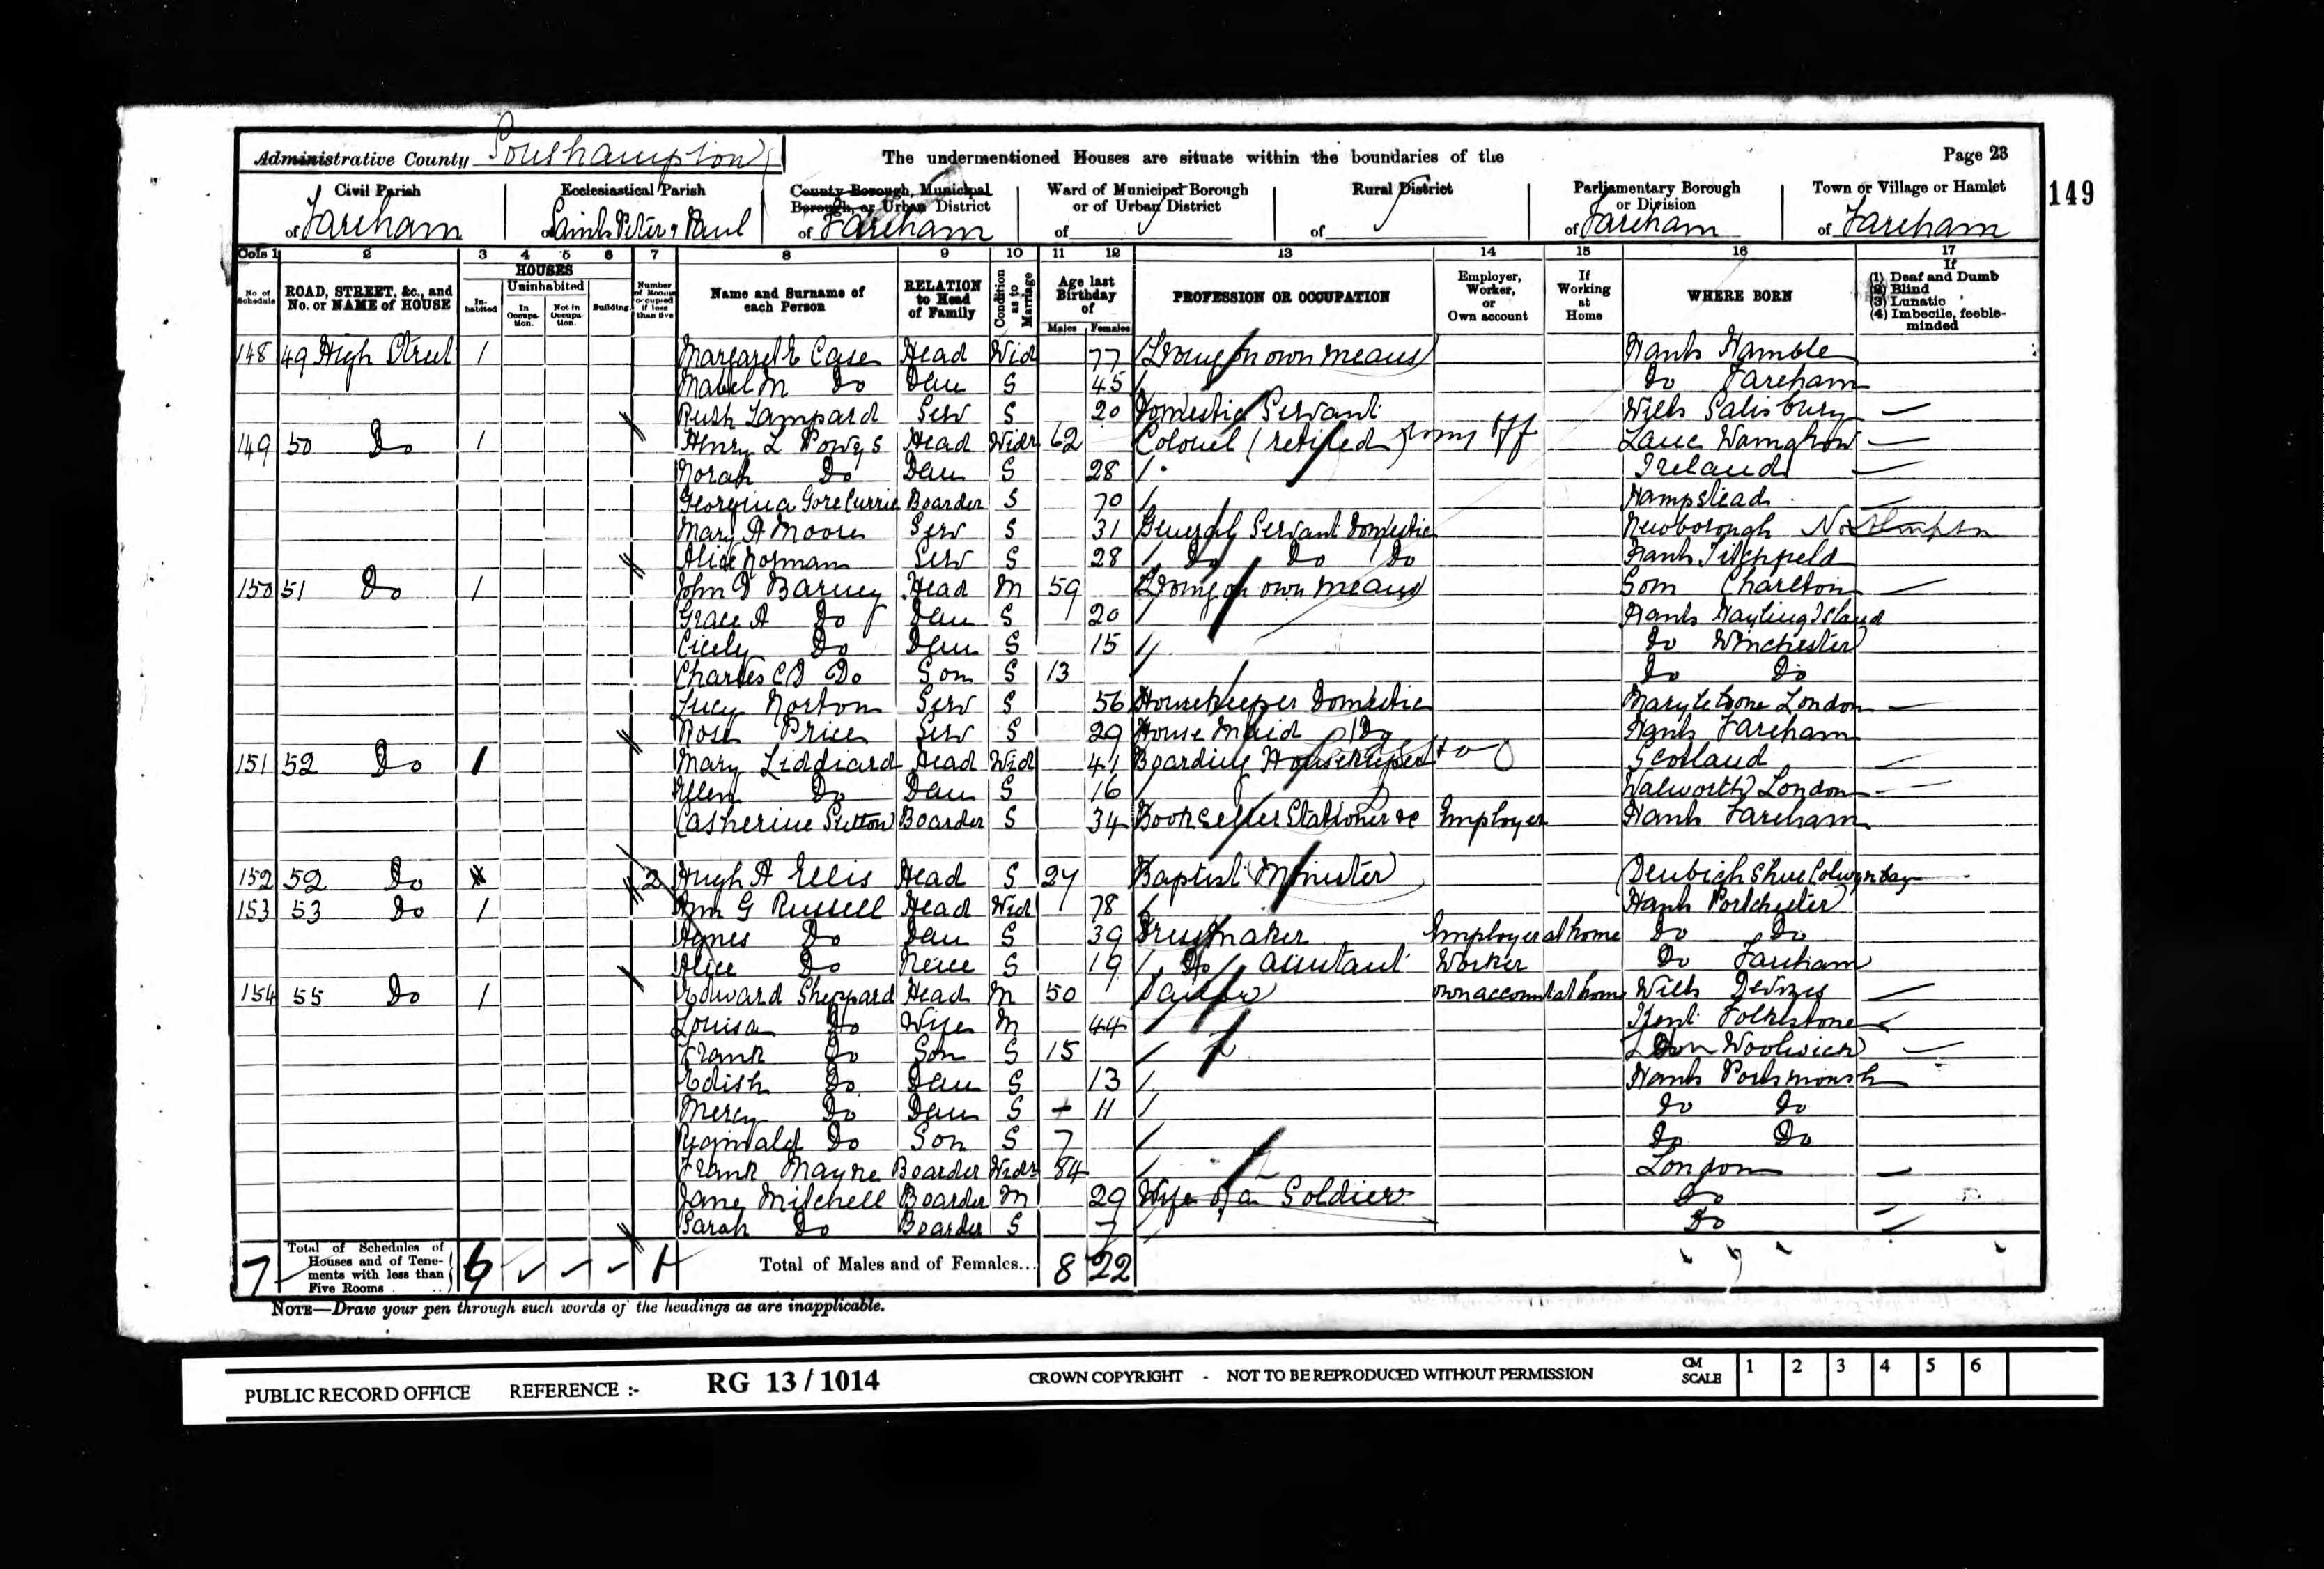 Administrative County Southampton The undermentioned Houses are situate within the boundaries of the Page 23
Civil Parish Ecclesiastical Parish County Borough, Municipal Borough, or Urban District Ward of Municipal Borough or of Urban District Rural District Parliamentary Borough or Division Town or Village or Hamlet 149
of Fareham of Saint Peter & Paul of Fareham of of of Fareham of Fareham
Cols 1 2 3 4 5 6 7 8 9 10 11 12 13 14 15 16 17
No of Schedule ROAD, STREET, &c., and No. or NAME of HOUSE HOUSES In-habited Uninhabited In Occupa-tion. Not in Occupa-tion. Building Number of Rooms occupied if less than five Name and Surname of each Person RELATION to Head of Family Condition as to Marriage Age last Birthday of Males Females PROFESSION OR OCCUPATION Employer, Worker, or Own account If Working at Home WHERE BORN If (1) Deaf and Dumb (2) Blind (3) Lunatic (4) Imbecile, feeble-minded
148 49 High Street 1 Margaret E Case Head Wid 77 Living on own means Hants Hamble
Mabel M Do Dau S 45 Do Fareham
Ruth Lampard Serv S 20 Domestic Servant Wilts Salisbury
149 50 Do 1 Henry L Powys Head Widr 62 Colonel (retired) Army Off Lanc
Norah Do Dau S 28 Ireland
Georgina Gore Currie Boarder S 70 Hampstead
Mary A Moore Serv S 31 General Servant Domestic Newborough
Alice Norman Serv S 28 Do Do Do Hants Titchfield
150 51 Do 1 John D Barney Head M 59 Living on own means Som Charlton
Grace A Do Dau S 20 Hants Hayling Island
Cicely Do Dau S 15 Do Winchester
Charles C D Do Son S 13 Do Do
Lucy Norton Serv S 56 Housekeeper Domestic Marylebone London
Rose Price Serv S 29 House Maid Do Hants Fareham
151 52 Do 1 Mary Liddiard Head Wid 41 Boarding Housekeeper Scotland
Ellen Do Dau S 16 Walworth London
Catherine Sutton Boarder S 34 Bookseller Stationer &c Employer Hants Fareham
152 52 Do 2 Hugh A Ellis Head S 27 Baptist Minister Denbighshire Colwyn bay
153 53 Do 1 Ann G Russell Head Wid 78 Hants Portchester
Agnes Do Dau S 39 Dressmaker Employer at home Do Do
Alice Do Neice S 19 Do assistant Worker Do Fareham
154 55 Do 1 Edward Sheppard Head M 50 own account at home Wilts Devizes
Louisa Do Wife M 44 Kent Folkestone
Frank Do Son S 15 Woolwich
Edith Do Dau S 13 Hants Portsmouth
Mercy Do Dau S 11 Do Do
Reginald Do Son S 7 Do Do
Frank Mayne Boarder Widr 84 London
Jane Mitchell Boarder M 29 Wife of a Soldier Do
Sarah Do Boarder S 7 Do
7 Total of Schedules of Houses and of Tene-ments with less than Five Rooms 6 1 Total of Males and of Females... 8 22
NOTE—Draw your pen through such words of the headings as are inapplicable.
PUBLIC RECORD OFFICE REFERENCE :- RG 13 / 1014 CROWN COPYRIGHT - NOT TO BE REPRODUCED WITHOUT PERMISSION CM SCALE 1 2 3 4 5 6